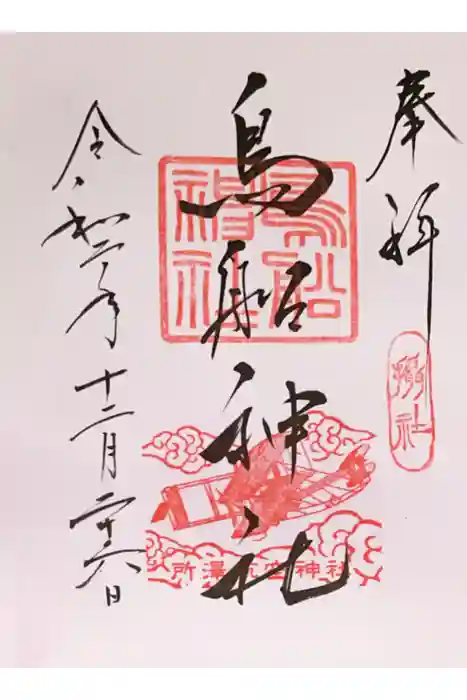 奉拝
攝社
鳥船神社
鳥船
神社
所澤航空神社
令和二年十二月二十六日